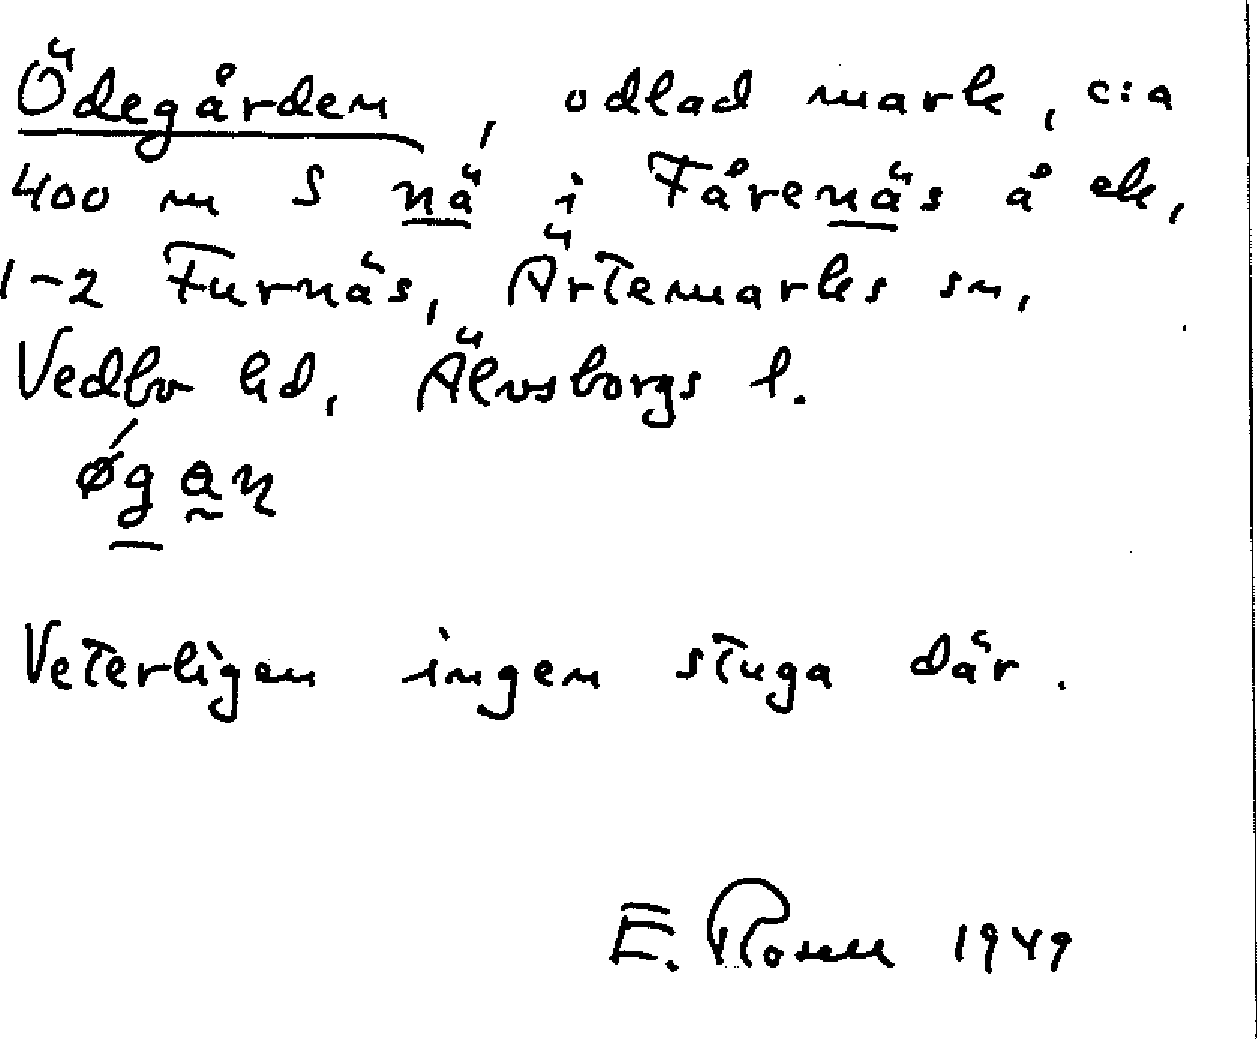 Ödegården, odlad mark, c:a
400 m S nä i Fårenäs å ek,
1-2 Furnäs, Ärtemarks sn,
Vedbo hd, Älvsborgs l.
ǿgan
Veterligen ingen stuga där.
E. Rosell 1949